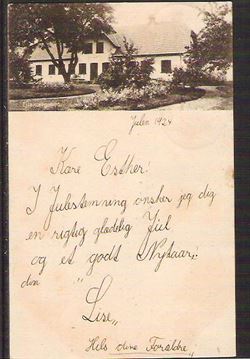 Julen 1924
Kære Esther!
I Julestemning ønsker jeg dig
en rigtig glædelig Jul
og et godt Nytaar!
din
"Lise"
Hils dine Forældre